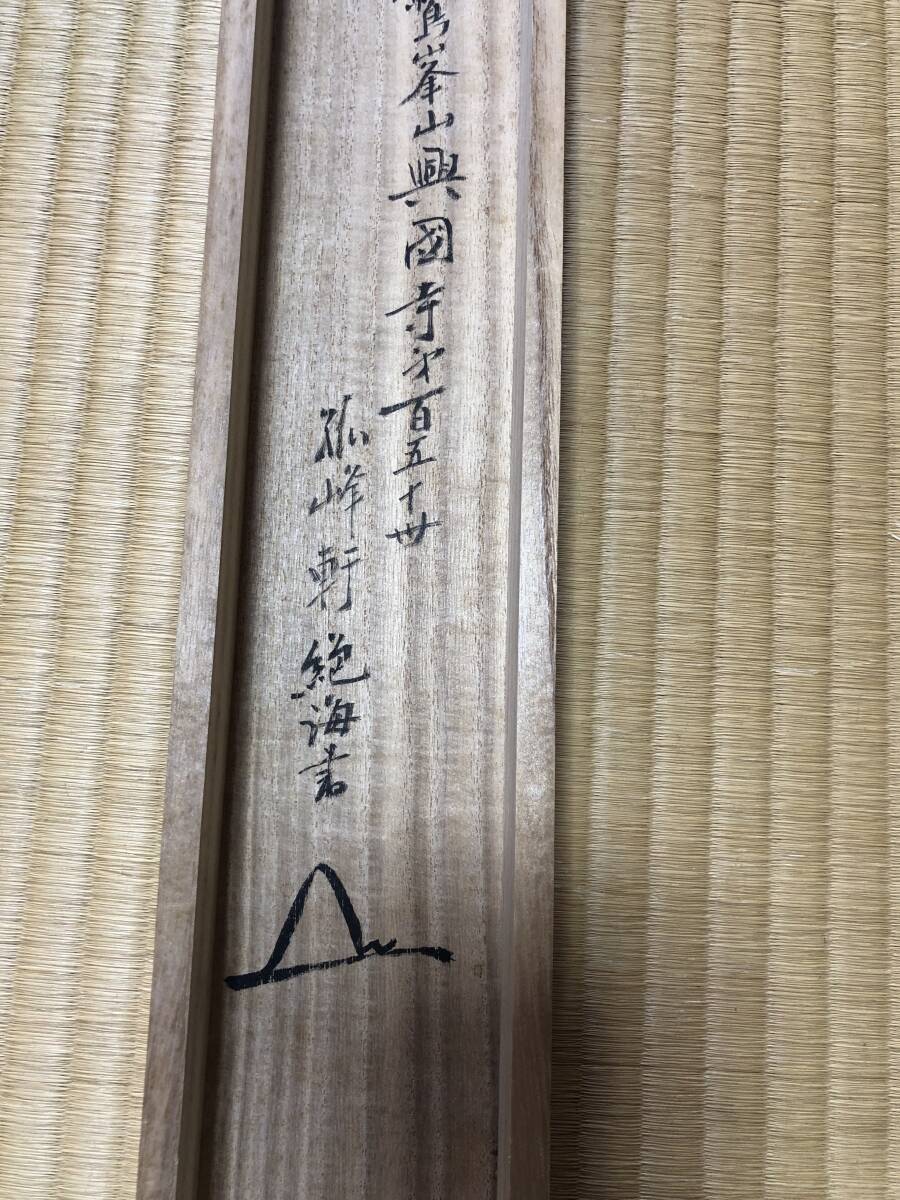 鷲峯山興國寺第百五十世
孤峰軒絶海書